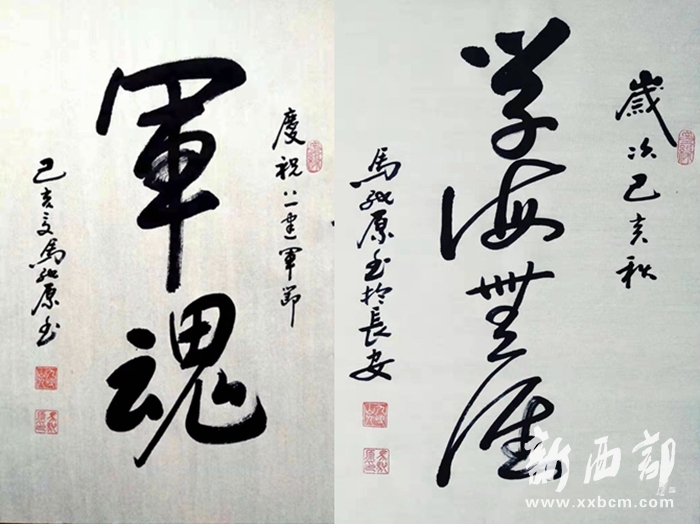 慶祝八一建軍節
軍魂
己亥夏馬原书
歲次己亥秋
学海無涯
馬原书於長安
新西部
www.xxbcm.com